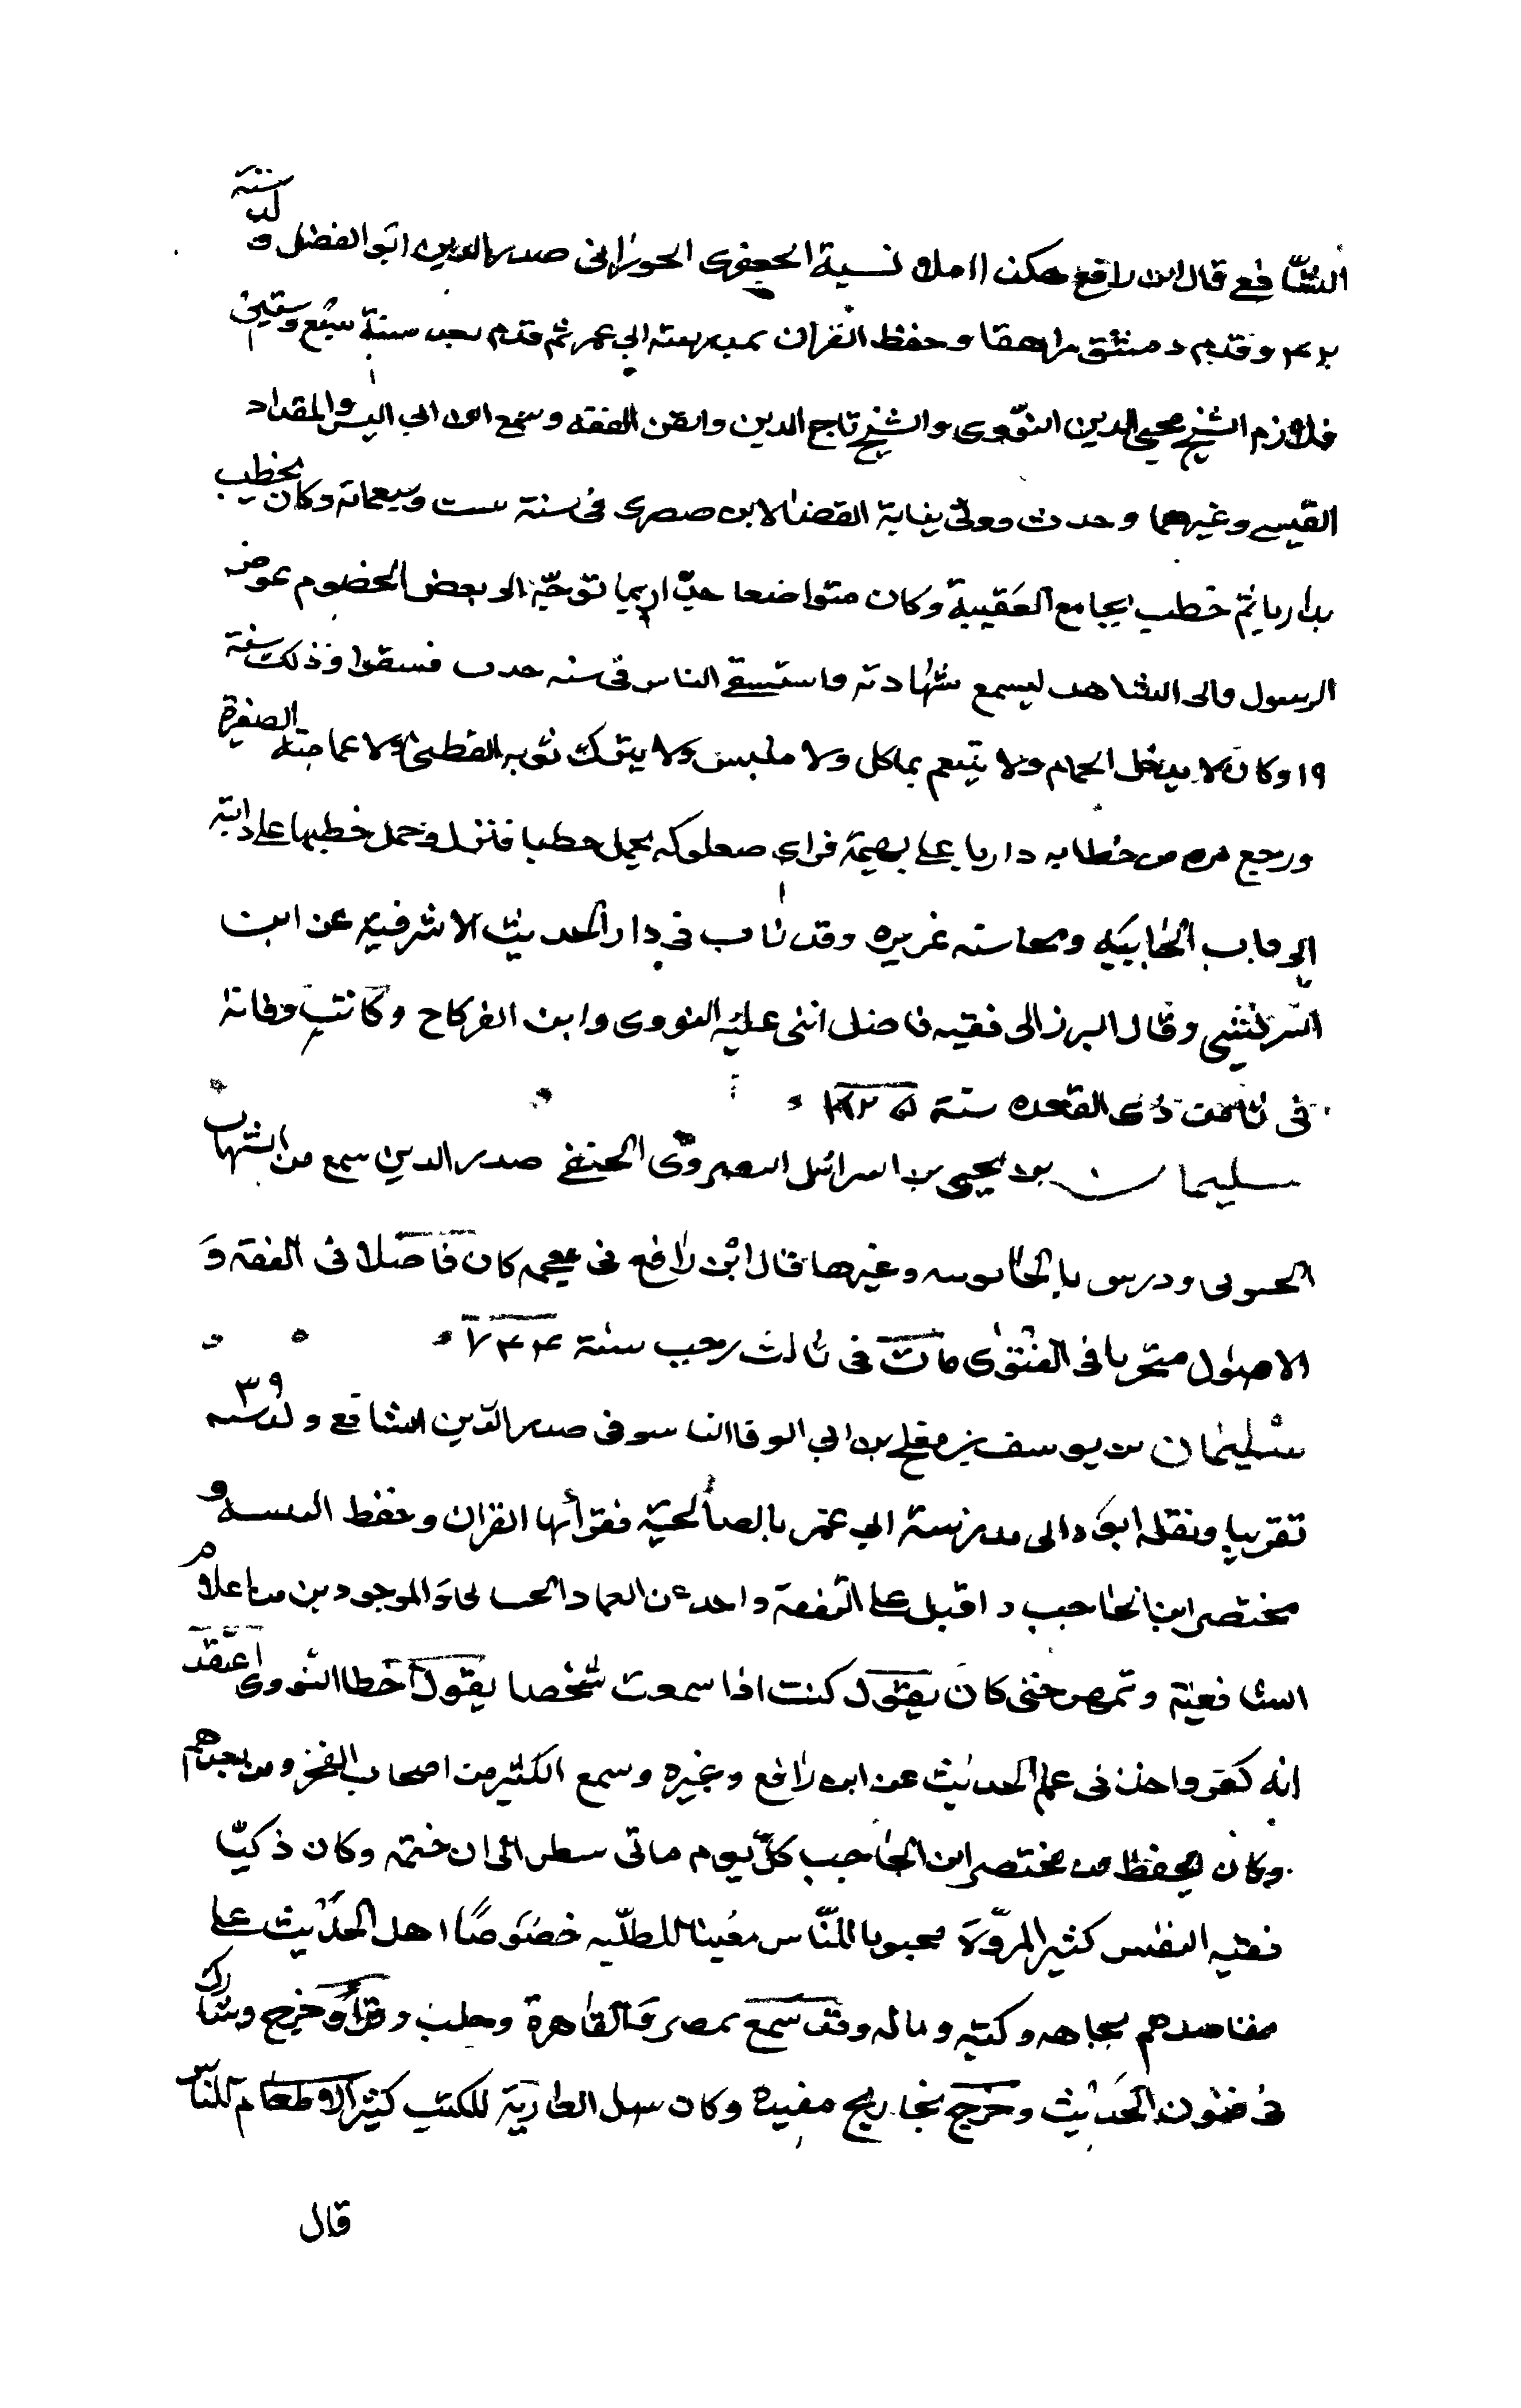 الشافعي قال ابن رافع هكذا املا نسبة الجعفري الحوراني صدر الدين ابو الفضل ولد سنة
٤٢ وقدم دمشق مراهقا وحفظ القران بمدرسة ابي عمر ثم قدم بعد سنة سبع وستين
فلازم الشيخ محيي الدين النووي والشيخ تاج الدين واتقن الفقه وسمع ابن ابي اليسر والمقداد
القيسي وغيرهما وحدث وولي نيابة القضا لابن صصرى في سنة ست وسبعمائة وكان يخطب
بداريا ثم خطب بجامع العقيبة وكان متواضعا حتى ربما توجه الى بعض الخصوم عوض
الرسول والى الشاهد ليسمع شهادته واستسقى الناس في سنه حدب فسقوا وذلك سنة
١٩ وكان لا يدخل الحمام ولا يتنعم بماكل ولا ملبس ولا يترك ثوبه القطني ولا عمامته الصغيرة
ورجع مره من خطابه داريا على بهيمة فراى صعلوكه يحمل حطبا فنزل وحمل حطبها على دابته
الى باب الجابيه ومحاسنه غزيره وقد ناب في دار الحديث الاشرفيه عن ابن
الشريشي وقال البرزالي فقيه فاضل اثنى عليه النووي وابن الفركاح وكانت وفاته
في ثامن ذي القعده سنة ٧٢٥
سليمان بن يحيى بن اسرائيل البصروي الحنفي صدر الدين سمع من الشهاب
الحسوبي ودرس بالخاتونيه وغيرها قال ابن رافع في معجمه كان فاضلا في الفقه و
الاصول متحريا في الفتوى مات في ثالث رجب سنة ٧٤٤
سليمان بن يوسف بن مفلح بن ابي الوفا الياسوفي صدر الدين الشافعي ولد سنه ٣٩
تقريبا ونقله ابوه الى مدرسة ابي عمر بالصالحية فقرأ بها القران وحفظ التنبيه و
مختصر ابن الحاجب واقبل على التفقه واخذ عن العماد الحسباني والموجودين من اعلام
الشافعية وتمهر حتى كان يقول كنت اذا سمعت شخصا يقول اخطا النووي اعتقد
انه كفر واخذ في علم الحديث عن ابن رافع وغيره وسمع الكثير من اصحاب الفخر ومن بعدهم
وكان يحفظ من مختصر ابن الحاجب كل يوم مائتي سطر الى ان ختمه وكان ذكيا
فقيه النفس كثير المروة محبوبا للناس معينا للطلبه خصوصا اهل الحديث على
مقاصدهم بجاهه وكتبه وماله وقد سمع بمصر والقاهرة وحلب وقرأ وخرج وشارك
في فنون الحديث وخرج تخاريج مفيدة وكان سهل العارية للكتب كثير الاطعام للناس
قال